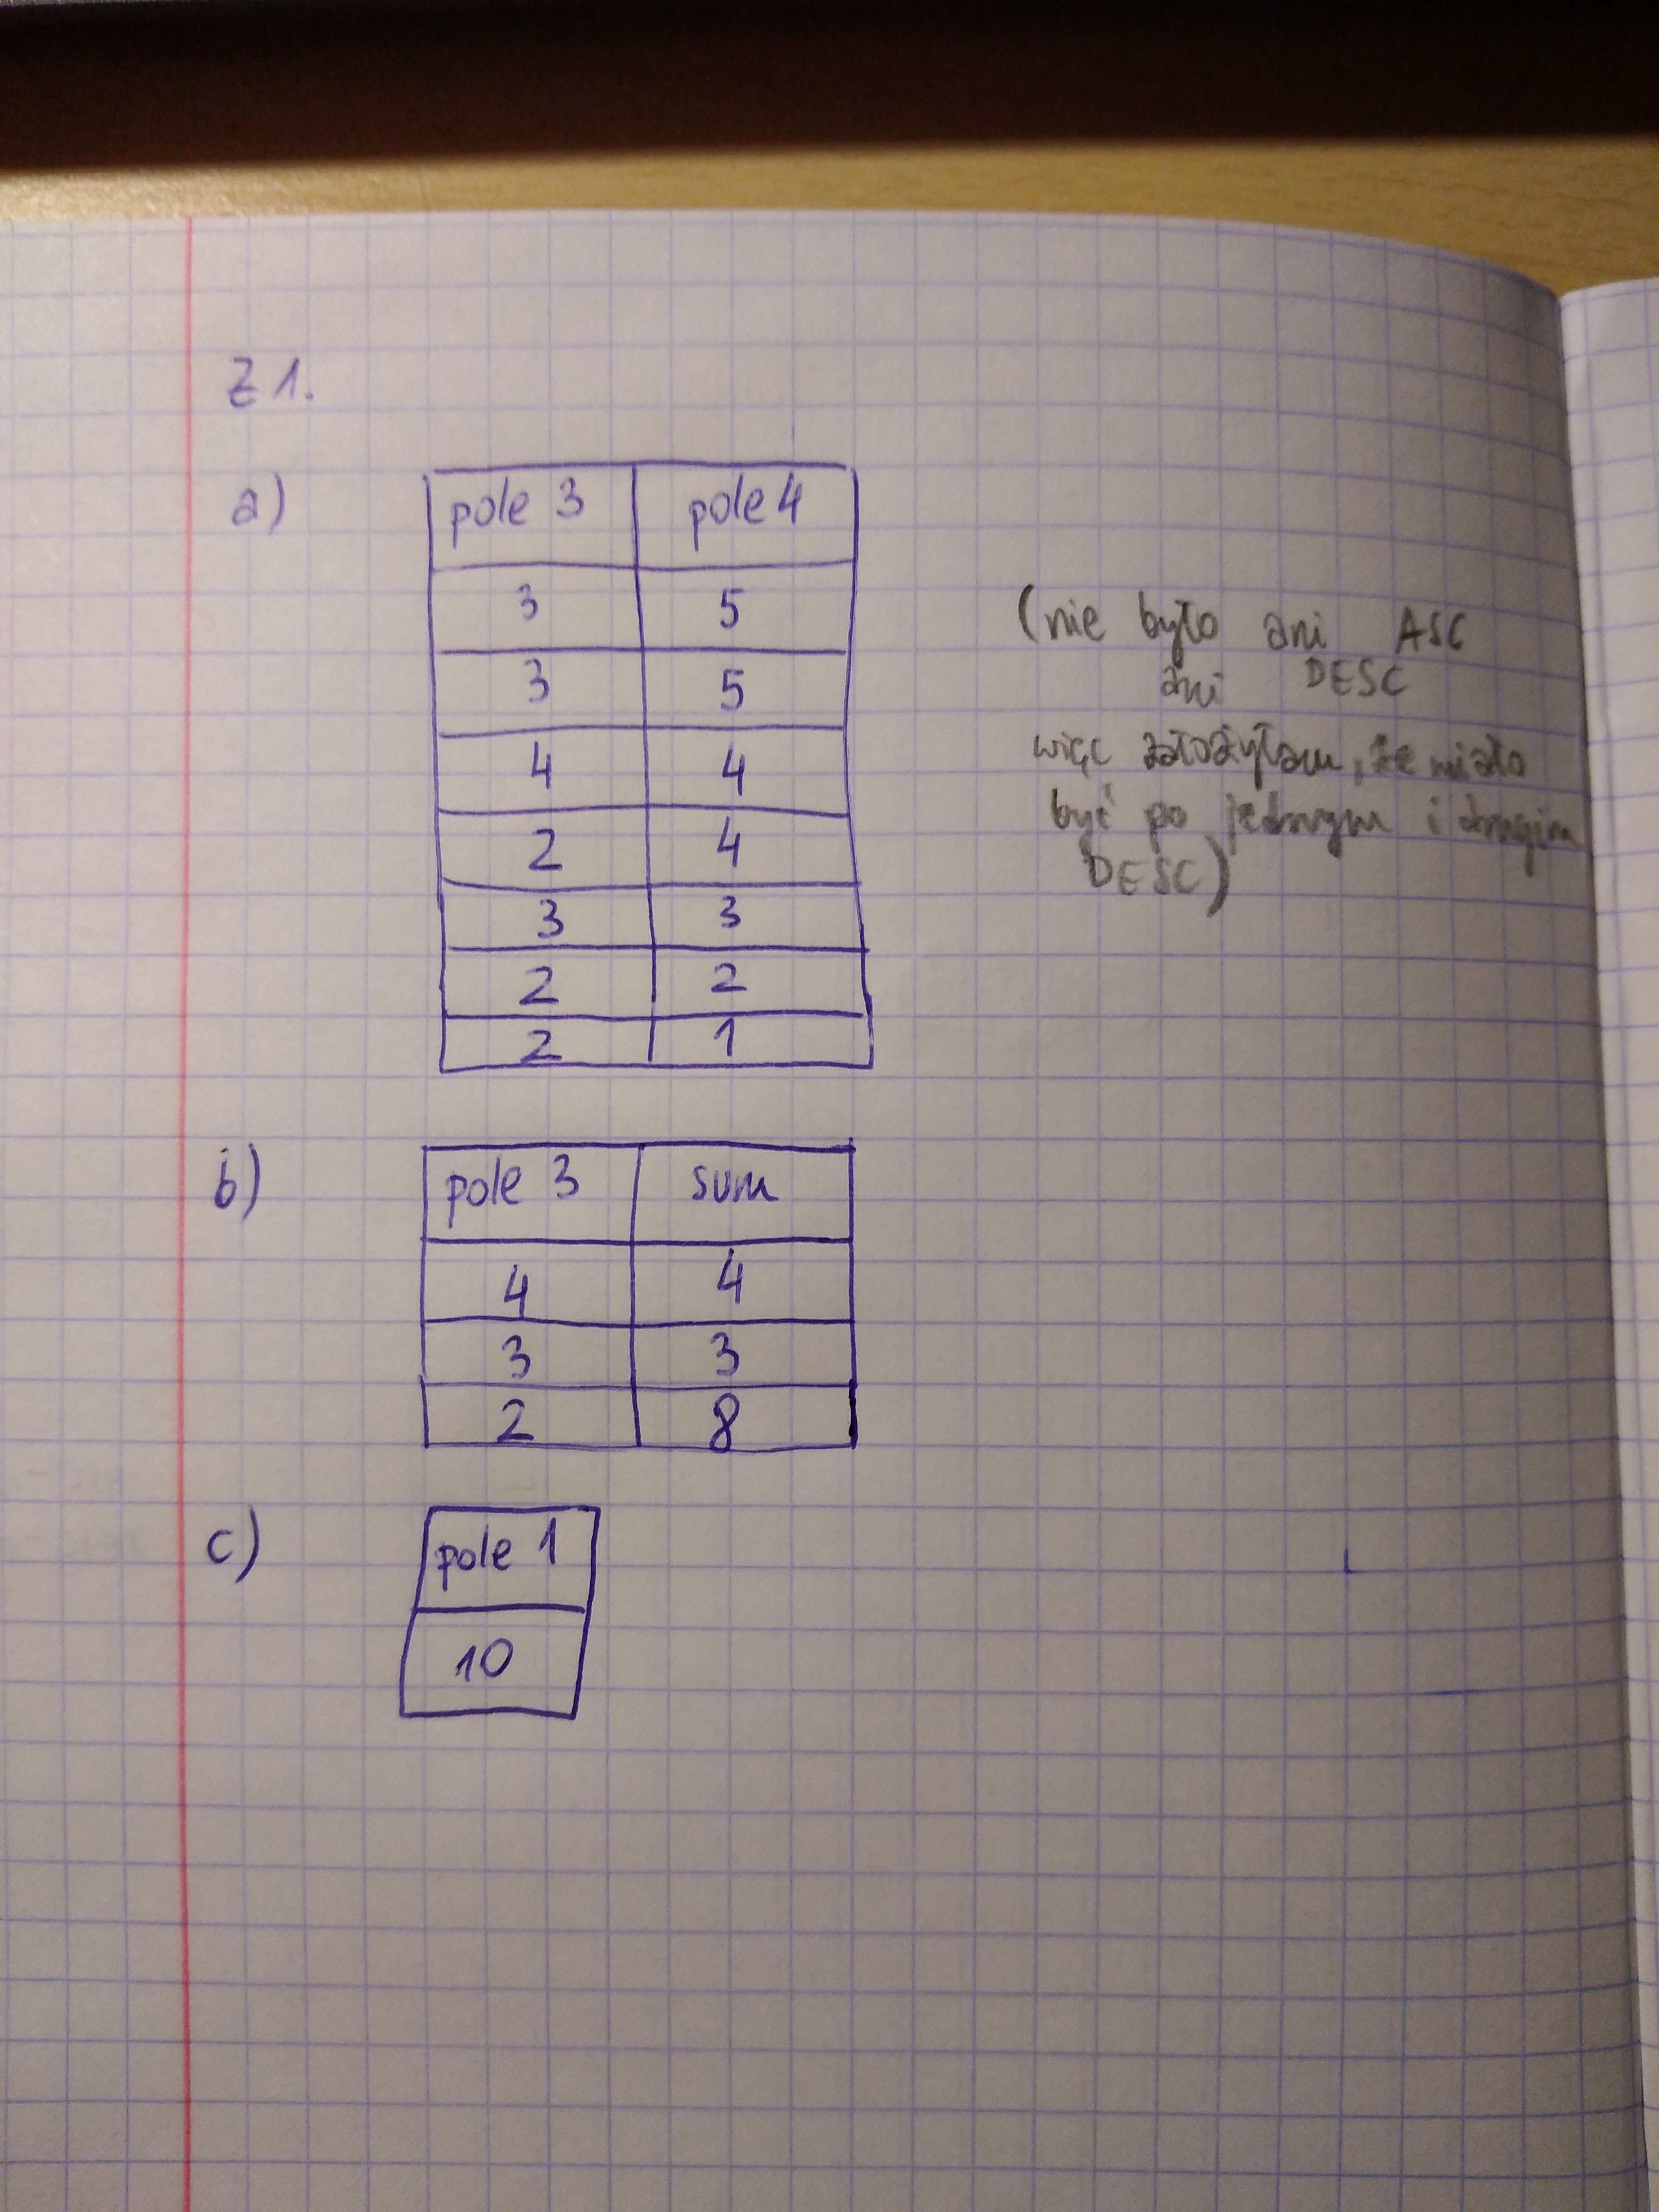 Z 1.
a)
pole 3 pole 4
3 5
3 5
4 4
2 4
3 3
2 2
2 1
(nie było ani ASC
ani DESC
więc założyłam, że miało
być po jednym i drugim
DESC)
b)
pole 3 sum
4 4
3 3
2 8
c)
pole 1
10